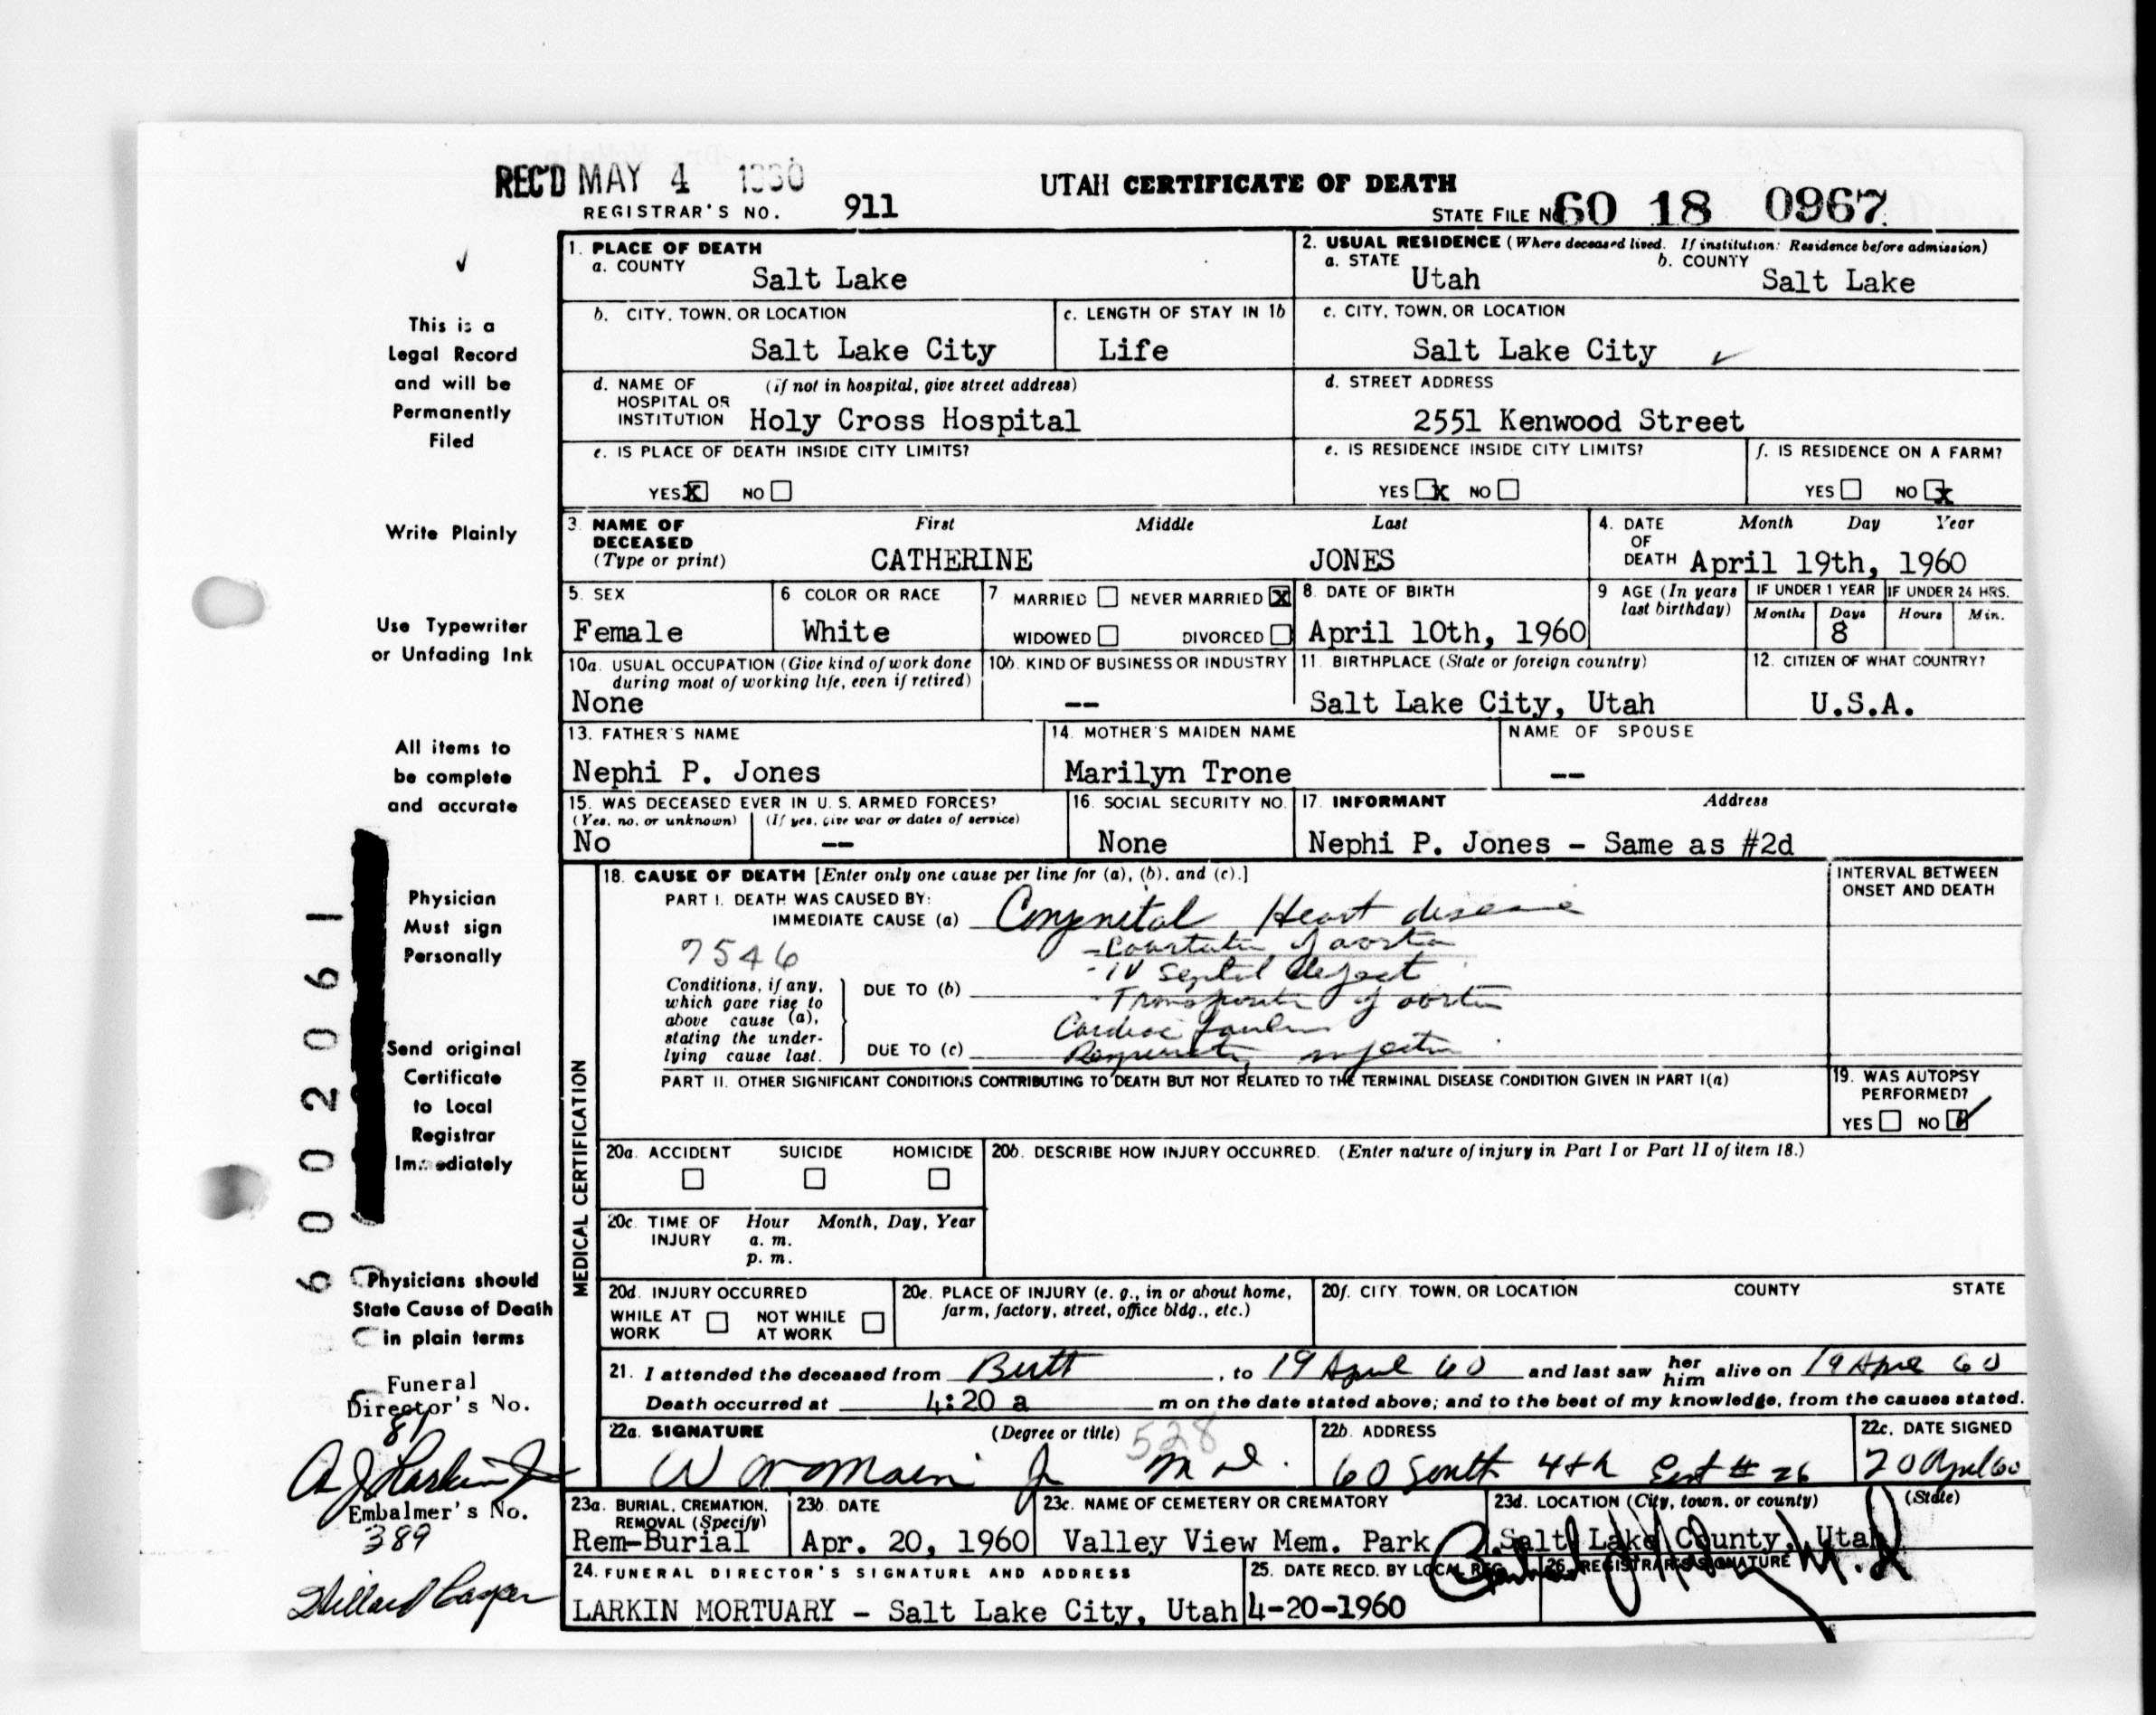 REC'D MAY 4 1960
REGISTRAR'S NO. 911
UTAH CERTIFICATE OF DEATH
STATE FILE NO. 60 18 0967
This is a
Legal Record
and will be
Permanently
Filed
Write Plainly
Use Typewriter
or Unfading Ink
All items to
be complete
and accurate
Physician
Must sign
Personally
Send original
Certificate
to Local
Registrar
Immediately
Physicians should
State Cause of Death
in plain terms
Funeral
Director's No.
81
A J Larkin Jr
Embalmer's No.
389
Willard Casper
6002061
1. PLACE OF DEATH
a. COUNTY
Salt Lake
2. USUAL RESIDENCE (Where deceased lived. If institution: Residence before admission)
a. STATE b. COUNTY
Utah Salt Lake
b. CITY, TOWN, OR LOCATION
Salt Lake City
c. LENGTH OF STAY IN 1b
Life
c. CITY, TOWN, OR LOCATION
Salt Lake City
d. NAME OF (if not in hospital, give street address)
HOSPITAL OR
INSTITUTION Holy Cross Hospital
d. STREET ADDRESS
2551 Kenwood Street
e. IS PLACE OF DEATH INSIDE CITY LIMITS?
YES X NO
e. IS RESIDENCE INSIDE CITY LIMITS?
YES X NO
f. IS RESIDENCE ON A FARM?
YES NO X
3. NAME OF First Middle Last
DECEASED
(Type or print) CATHERINE JONES
4. DATE Month Day Year
OF
DEATH April 19th, 1960
5. SEX
Female
6 COLOR OR RACE
White
7 MARRIED NEVER MARRIED X
WIDOWED DIVORCED
8. DATE OF BIRTH
April 10th, 1960
9 AGE (In years
last birthday)
IF UNDER 1 YEAR IF UNDER 24 HRS.
Months Days Hours Min.
8
10a. USUAL OCCUPATION (Give kind of work done
during most of working life, even if retired)
None
10b. KIND OF BUSINESS OR INDUSTRY
--
11. BIRTHPLACE (State or foreign country)
Salt Lake City, Utah
12. CITIZEN OF WHAT COUNTRY?
U.S.A.
13. FATHER'S NAME
Nephi P. Jones
14. MOTHER'S MAIDEN NAME
Marilyn Trone
NAME OF SPOUSE
--
15. WAS DECEASED EVER IN U. S. ARMED FORCES?
(Yes, no, or unknown) (If yes, give war or dates of service)
No --
16. SOCIAL SECURITY NO.
None
17. INFORMANT Address
Nephi P. Jones - Same as #2d
MEDICAL CERTIFICATION
18. CAUSE OF DEATH [Enter only one cause per line for (a), (b), and (c).]
INTERVAL BETWEEN
ONSET AND DEATH
PART I. DEATH WAS CAUSED BY:
IMMEDIATE CAUSE (a) Congenital Heart disease
7546
-Coarctation of aorta
-IV septal defect
Conditions, if any,
which gave rise to
above cause (a),
stating the under-
lying cause last.
DUE TO (b)
-Transposition of aorta
Cardiac failure
DUE TO (c) Respiratory infection
PART II. OTHER SIGNIFICANT CONDITIONS CONTRIBUTING TO DEATH BUT NOT RELATED TO THE TERMINAL DISEASE CONDITION GIVEN IN PART I(a)
19. WAS AUTOPSY
PERFORMED?
YES NO
20a. ACCIDENT SUICIDE HOMICIDE
20b. DESCRIBE HOW INJURY OCCURRED. (Enter nature of injury in Part I or Part II of item 18.)
20c. TIME OF Hour Month, Day, Year
INJURY a. m.
p. m.
20d. INJURY OCCURRED
WHILE AT NOT WHILE
WORK AT WORK
20e. PLACE OF INJURY (e. g., in or about home,
farm, factory, street, office bldg., etc.)
20f. CITY TOWN, OR LOCATION COUNTY STATE
21. I attended the deceased from Birth, to 19 April 60 and last saw her him alive on 19 Apr 60
Death occurred at 4:20 a m on the date stated above; and to the best of my knowledge, from the causes stated.
22a. SIGNATURE (Degree or title) 528
Jr MD.
22b. ADDRESS
60 South 4th East # 26
22c. DATE SIGNED
20 April 60
23a. BURIAL, CREMATION,
REMOVAL (Specify)
Rem-Burial
23b. DATE
Apr. 20, 1960
23c. NAME OF CEMETERY OR CREMATORY
Valley View Mem. Park
23d. LOCATION (City, town, or county) (State)
Salt Lake County, Utah
24. FUNERAL DIRECTOR'S SIGNATURE AND ADDRESS
LARKIN MORTUARY - Salt Lake City, Utah
25. DATE RECD. BY LOCAL REG.
4-20-1960
26. REGISTRAR'S SIGNATURE
M.D